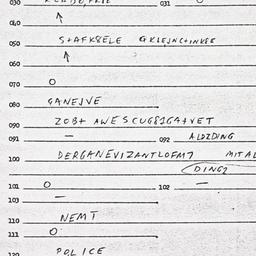 030 031 O
040
050 STAFKSELE GKLEJNCTINKER
060
070 O
080 GANEJVE
090 ZOBT AWESCUG8IGATVET
091 — 092 ALDZDING
100 DERGANEVIZANTLOFMT MITAL
DINGZ
101 O 102 —
103 —
110 NEMT
111 O
120 POLICE